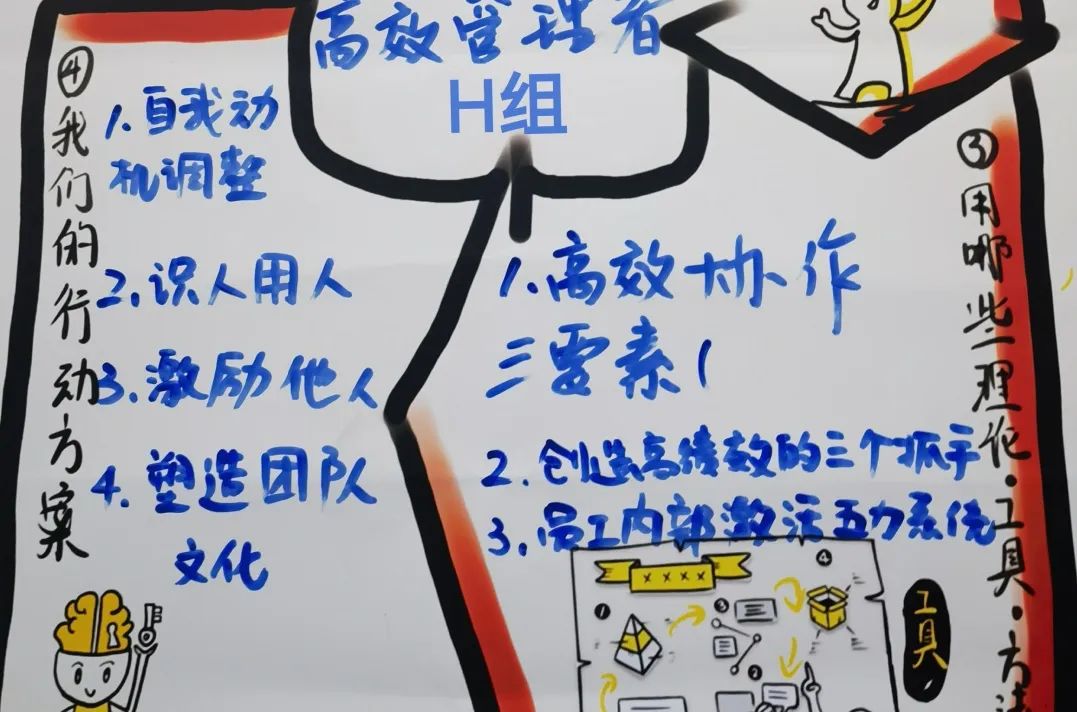 高效管理者
H组
④我们的行动方案
1.自我动
机调整
2.识人用人
3.激励他人
4.塑造团队
文化
③用哪些理伦·工具·方法
1.高效协作
三要素(
2.创造高绩效的三个抓手
3.员工内部激活五力系统
××××
①
③
④
②
工具